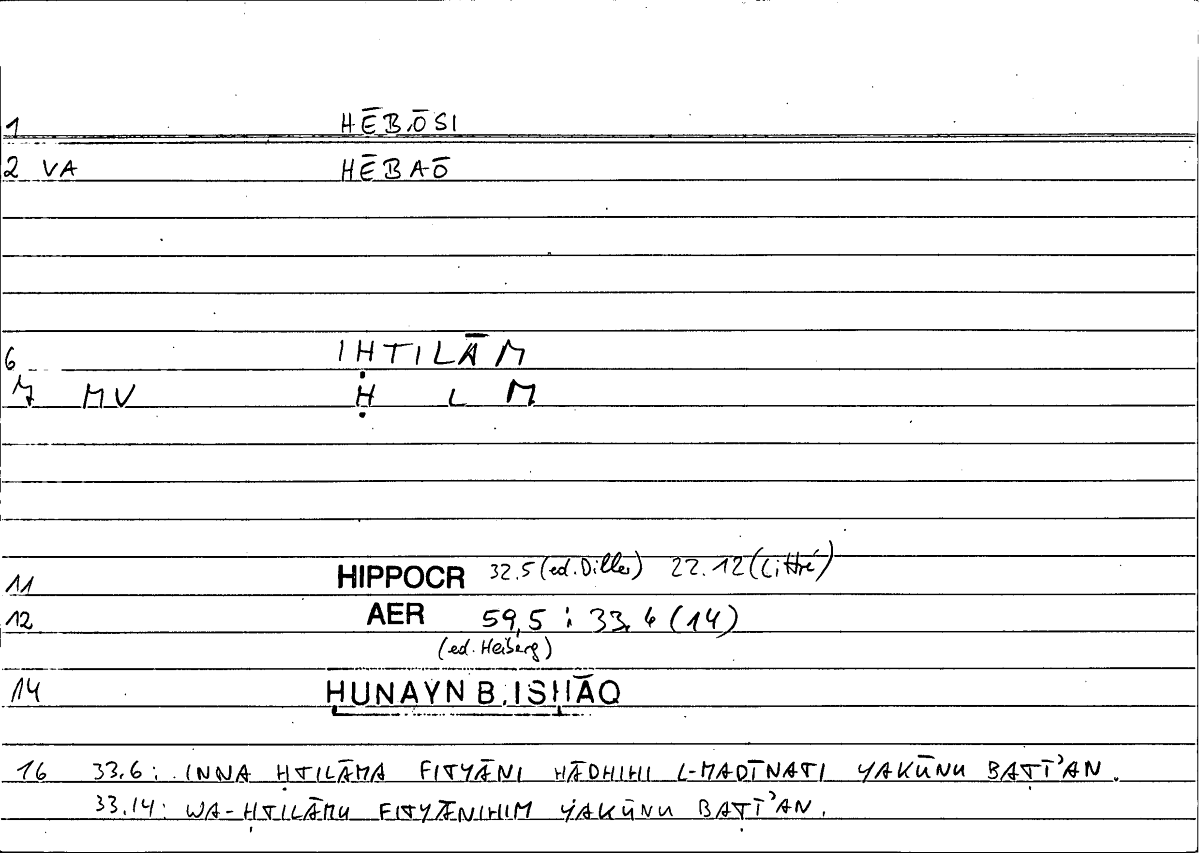 1 HĒB.ŌSI
2 VA HĒBAŌ
6 IḤTILĀM
7 MV Ḥ L M
11 HIPPOCR 32.5 (ed. Diller) 22.12 (Littré)
12 AER 59,5 : 33.6 (14)
(ed. Heiberg)
14 ḤUNAYN B. ISḤĀQ
16 33.6: INNA ḤTILĀMA FITYĀNI HĀDHIHI L-MADĪNATI YAKŪNU BAṬĪʾAN.
33.14: WA-ḤTILĀMU FITYĀNIHIM YAKŪNU BAṬĪʾAN.